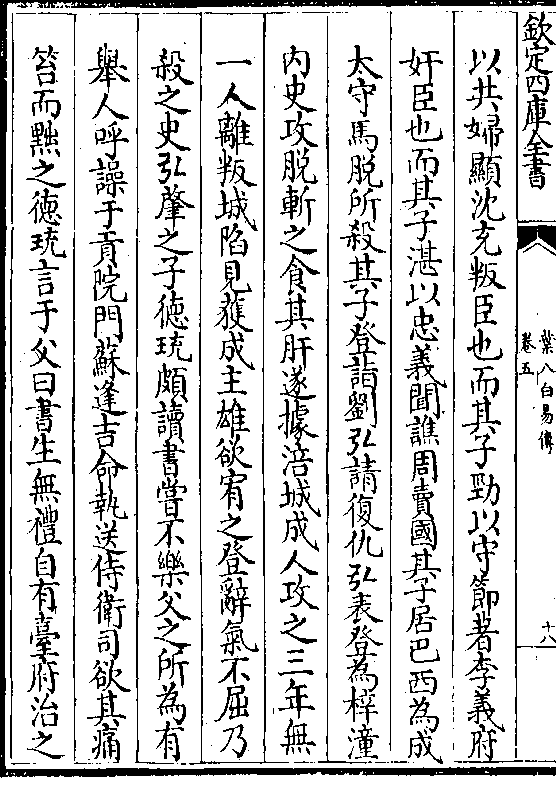 欽定四庫全書
葉八白易傳
卷五
十八
以共婦顯沈充叛臣也而其子勁以守節著李義府
奸臣也而其子湛以忠義聞譙周賣國其子居巴西為成
太守馬脫所殺其子登詣劉弘請復仇弘表登為梓潼
內史攻脫斬之食其肝遂據涪城成人攻之三年無
一人離叛城陷見獲成主雄欲宥之登辭氣不屈乃
殺之史弘肇之子德珫頗讀書嘗不樂父之所為有
舉人呼譟于貢院門蘇逢吉命執送侍衛司欲其痛
笞而黥之德珫言于父曰書生無禮自有臺府治之